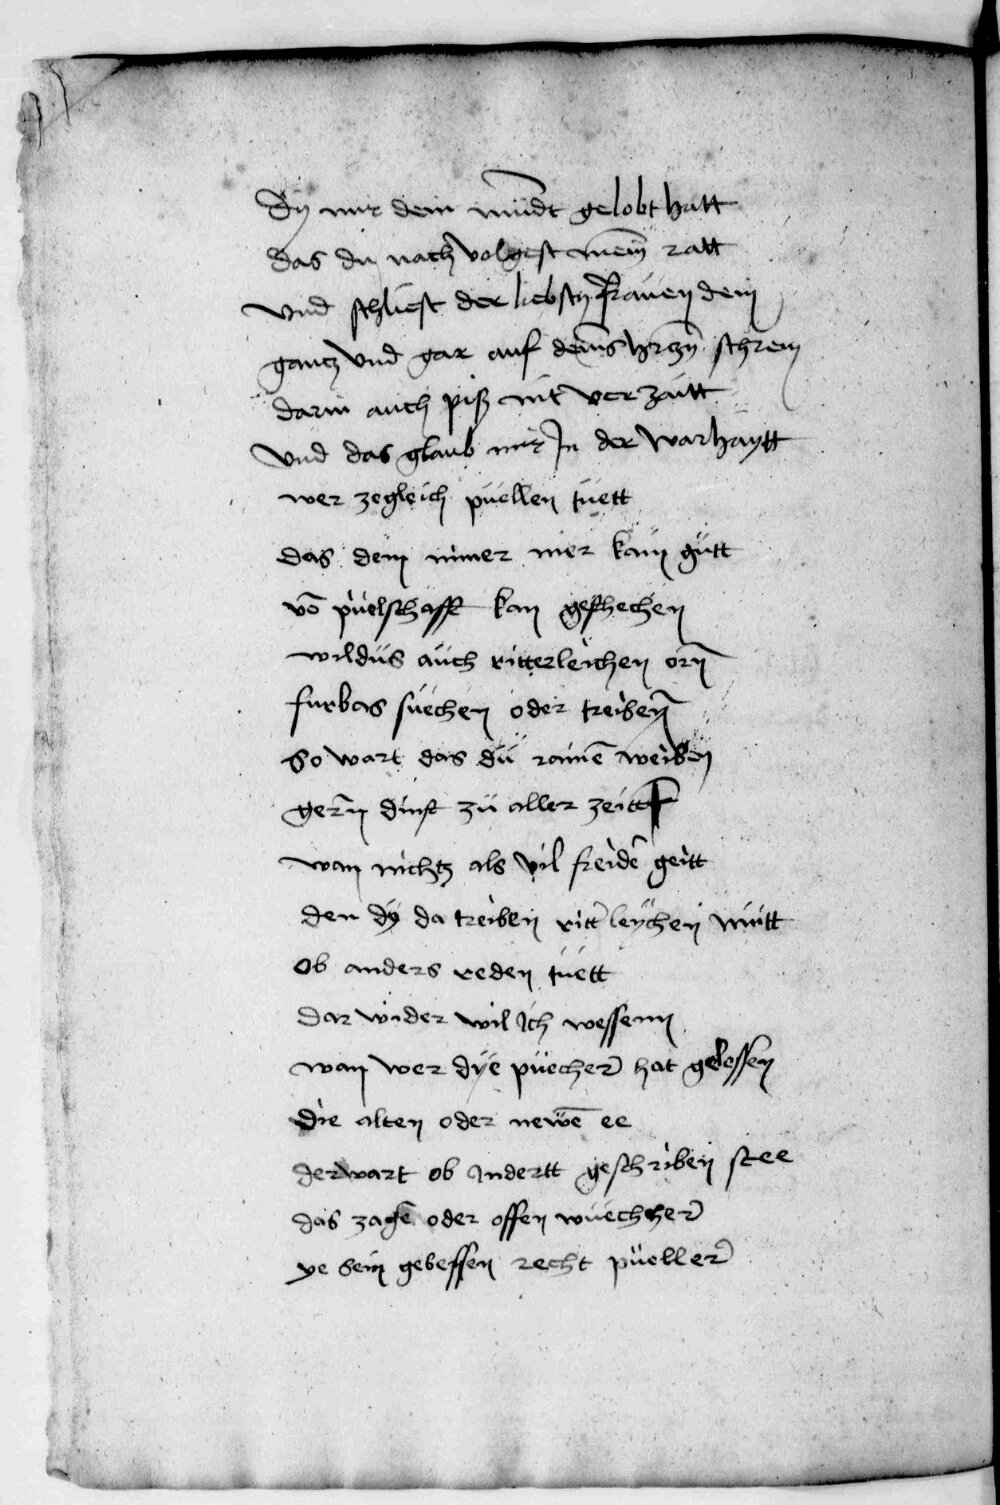 Dy mir dein mündt gelobt hatt
das du nach volgest meīn ratt
Vnd schliest der liebstn frauen dein
gantz vnd gar auf deins hrczn schrein
darin auch piß nit verzaitt
Vnd das glaub mir Jn der warhaytt
wer zegleich püellen tüett
das dem nimer mer kain gütt
vō püelschafft kan geschechen
wildus auch ritterleichen orn̄
furbas süechen oder treiben̄
so wart das dü rainē weiben
gern̄ dinst zü aller zeitt
wan nichtz als vil freidē geitt
den dy da treiben ritt̄leychen mütt
ob anders reden tüett
dar wider wil Ich wessenn
wan wer dye püecher hat gelessen
die alten oder newē ee
derwart ob Jndertt geschriben stee
das zagē oder offen wüechher
ye sein gebessen recht püeller